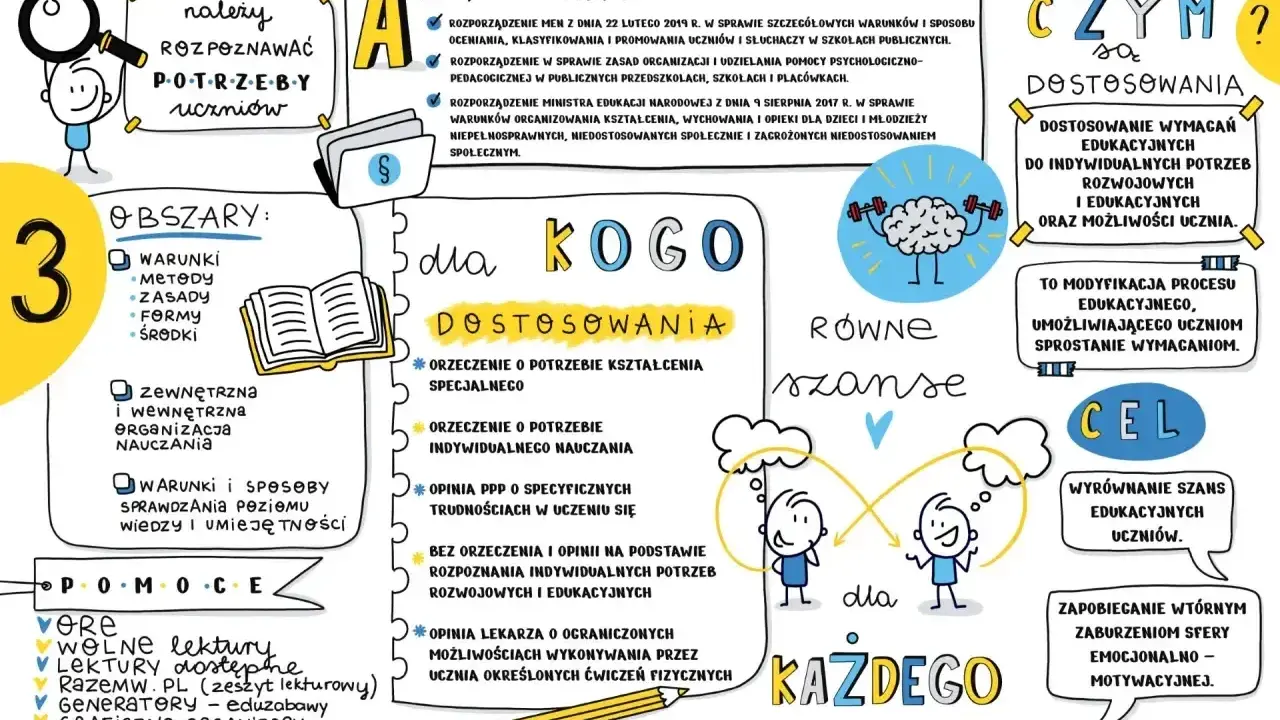 należy
ROZPOZNAWAĆ
POTRZEBY
uczniów
A
ROZPORZĄDZENIE MEN Z DNIA 22 LUTEGO 2019 R. W SPRAWIE SZCZEGÓŁOWYCH WARUNKÓW I SPOSOBU
OCENIANIA, KLASYFIKOWANIA I PROMOWANIA UCZNIÓW I SŁUCHACZY W SZKOŁACH PUBLICZNYCH.
ROZPORZĄDZENIE W SPRAWIE ZASAD ORGANIZACJI I UDZIELANIA POMOCY PSYCHOLOGICZNO-
PEDAGOGICZNEJ W PUBLICZNYCH PRZEDSZKOLACH, SZKOŁACH I PLACÓWKACH.
ROZPORZĄDZENIE MINISTRA EDUKACJI NARODOWEJ Z DNIA 9 SIERPNIA 2017 R. W SPRAWIE
WARUNKÓW ORGANIZOWANIA KSZTAŁCENIA, WYCHOWANIA I OPIEKI DLA DZIECI I MŁODZIEŻY
NIEPEŁNOSPRAWNYCH, NIEDOSTOSOWANYCH SPOŁECZNIE I ZAGROŻONYCH NIEDOSTOSOWANIEM
SPOŁECZNYM.
§
CZYM
są
DOSTOSOWANIA
?
DOSTOSOWANIE WYMAGAŃ
EDUKACYJNYCH
DO INDYWIDUALNYCH POTRZEB
ROZWOJOWYCH
I EDUKACYJNYCH
ORAZ MOŻLIWOŚCI UCZNIA.
TO MODYFIKACJA PROCESU
EDUKACYJNEGO,
UMOŻLIWIAJĄCEGO UCZNIOM
SPROSTANIE WYMAGANIOM.
CEL
WYRÓWNANIE SZANS
EDUKACYJNYCH
UCZNIÓW.
ZAPOBIEGANIE WTÓRNYM
ZABURZENIOM SFERY
EMOCJONALNO –
MOTYWACYJNEJ.
3
OBSZARY:
WARUNKI
METODY
ZASADY
FORMY
ŚRODKI
ZEWNĘTRZNA
I WEWNĘTRZNA
ORGANIZACJA
NAUCZANIA
WARUNKI I SPOSOBY
SPRAWDZANIA POZIOMU
WIEDZY I UMIEJĘTNOŚCI
POMOCE
ORE
WOLNE lektury
LEKTURY dostępne
RAZEMW.PL (zeszyt lekturowy)
GENERATORY – eduzabawy
dla KOGO
DOSTOSOWANIA
ORZECZENIE O POTRZEBIE KSZTAŁCENIA
SPECJALNEGO
ORZECZENIE O POTRZEBIE
INDYWIDUALNEGO NAUCZANIA
OPINIA PPP O SPECYFICZNYCH
TRUDNOŚCIACH W UCZENIU SIĘ
BEZ ORZECZENIA I OPINII NA PODSTAWIE
ROZPOZNANIA INDYWIDUALNYCH POTRZEB
ROZWOJOWYCH I EDUKACYJNYCH
OPINIA LEKARZA O OGRANICZONYCH
MOŻLIWOŚCIACH WYKONYWANIA PRZEZ
UCZNIA OKREŚLONYCH ĆWICZEŃ FIZYCZNYCH
RÓWNE
szanse
dla
KAŻDEGO